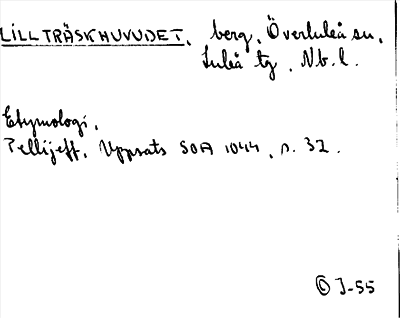 LILLTRÄSKHUVUDET, berg, Överluleå sn,
Luleå tg, Nb.l.
Etymologi,
Pellijeff, Uppsats SOA 1044, s. 32.
© J-55